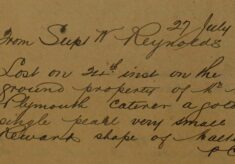 27 July
From Supt W Reynolds
Lost on 21st inst on the
ground property of Mr
Plymouth Caterer a gold
single pearl very small
Reward shape of Malt